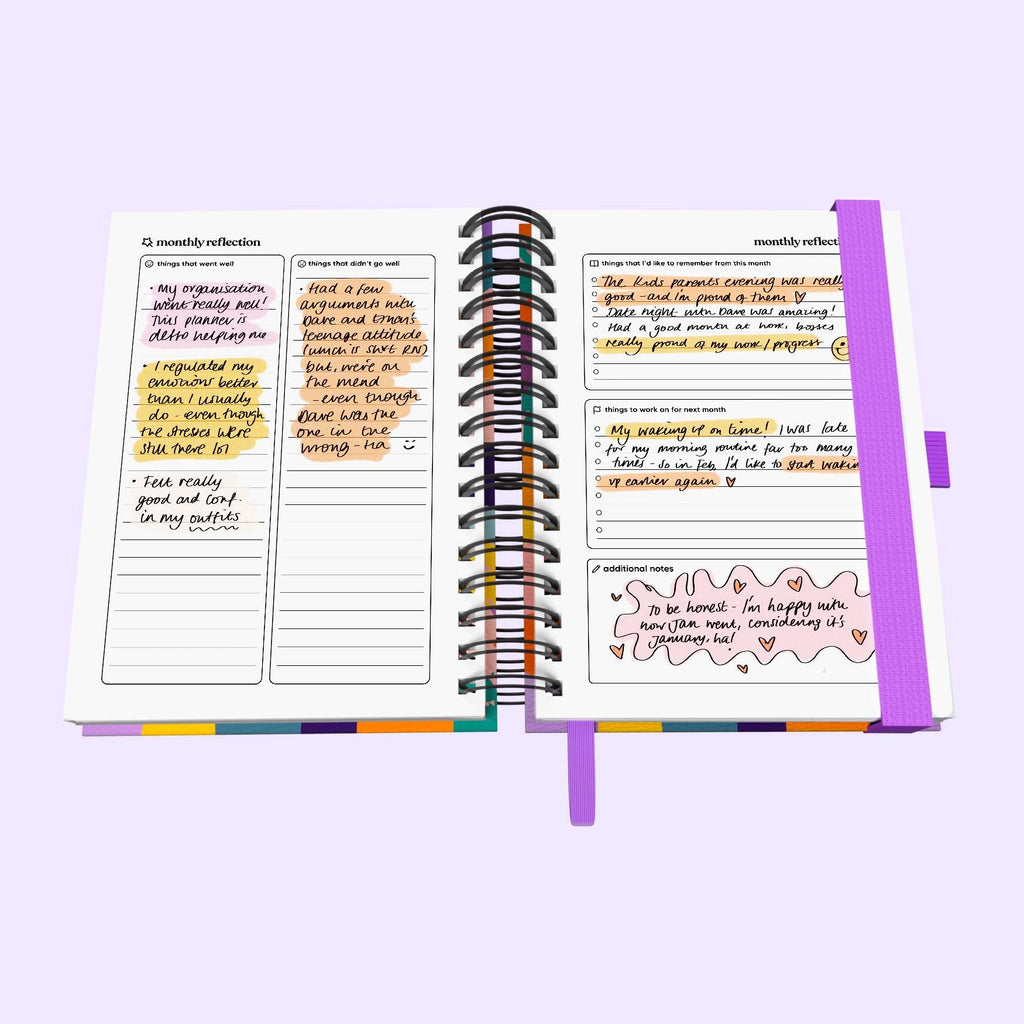 monthly reflection
things that went well
• My organisation
went really well!
This planner is
deffo helping me
• I regulated my
emotions better
than I usually
do - even though
the stresses were
still there lol
• Felt really
good and conf.
in my outfits
things that didn't go well
• Had a few
arguments with
Dave and
teenage attitude
(which is sh*t RN)
but, we're on
the mend
- even though
Dave was the
one in the
wrong - ha
monthly reflecti
things that I'd like to remember from this month
The Kids parents evening was really
good - and I'm proud of them
Date night with Dave was amazing!
Had a good month at work, bosses
really proud of my work / progress
things to work on for next month
My waking up on time! I was late
for my morning routine far too many
times - so in Feb, I'd like to start wakin
up earlier again
additional notes
To be honest - I'm happy with
how Jan went, considering it's
January, ha!